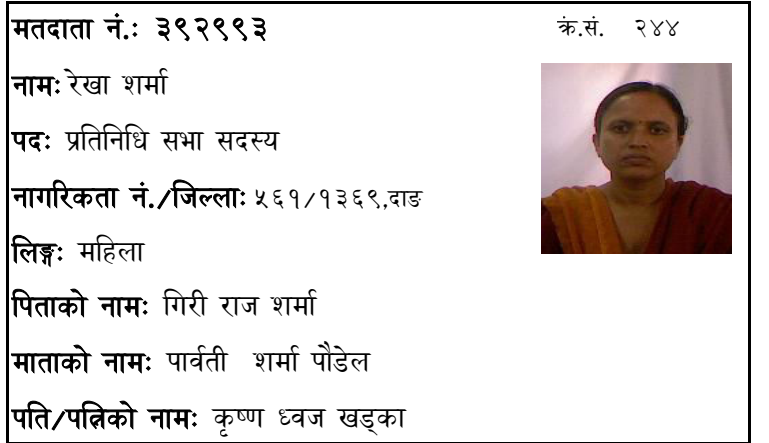 मतदाता नं.: ३९२९९३ क्रं.सं. २४४
नाम: रेखा शर्मा
पद: प्रतिनिधि सभा सदस्य
नागरिकता नं./जिल्ला: ५६१/१३६९,दाङ
लिङ्ग: महिला
पिताको नाम: गिरी राज शर्मा
माताको नाम: पार्वती शर्मा पौडेल
पति/पत्निको नाम: कृष्ण ध्वज खड्का